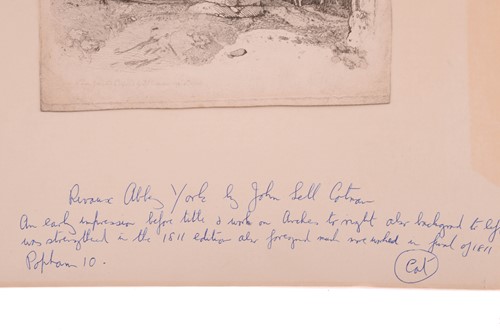 Rivaux Abbey York by John Sell Cotman
An early impression before title & work on Arches to right also background to left
was strengthened in the 1811 edition also foreground much more worked in final of 1811
Popham 10.
Cat